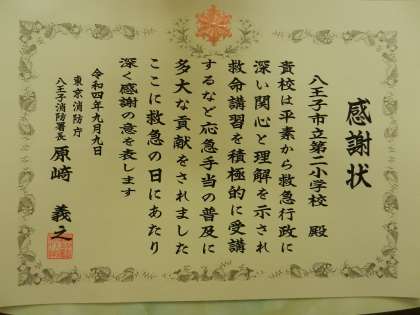 感謝状
八王子市立第二小学校 殿
貴校は平素から救急行政に
深い関心と理解を示され
救命講習を積極的に受講
するなど応急手当の普及に
多大な貢献をされました
ここに救急の日にあたり
深く感謝の意を表します
令和四年九月九日
東京消防庁
八王子消防署長 原崎 義之